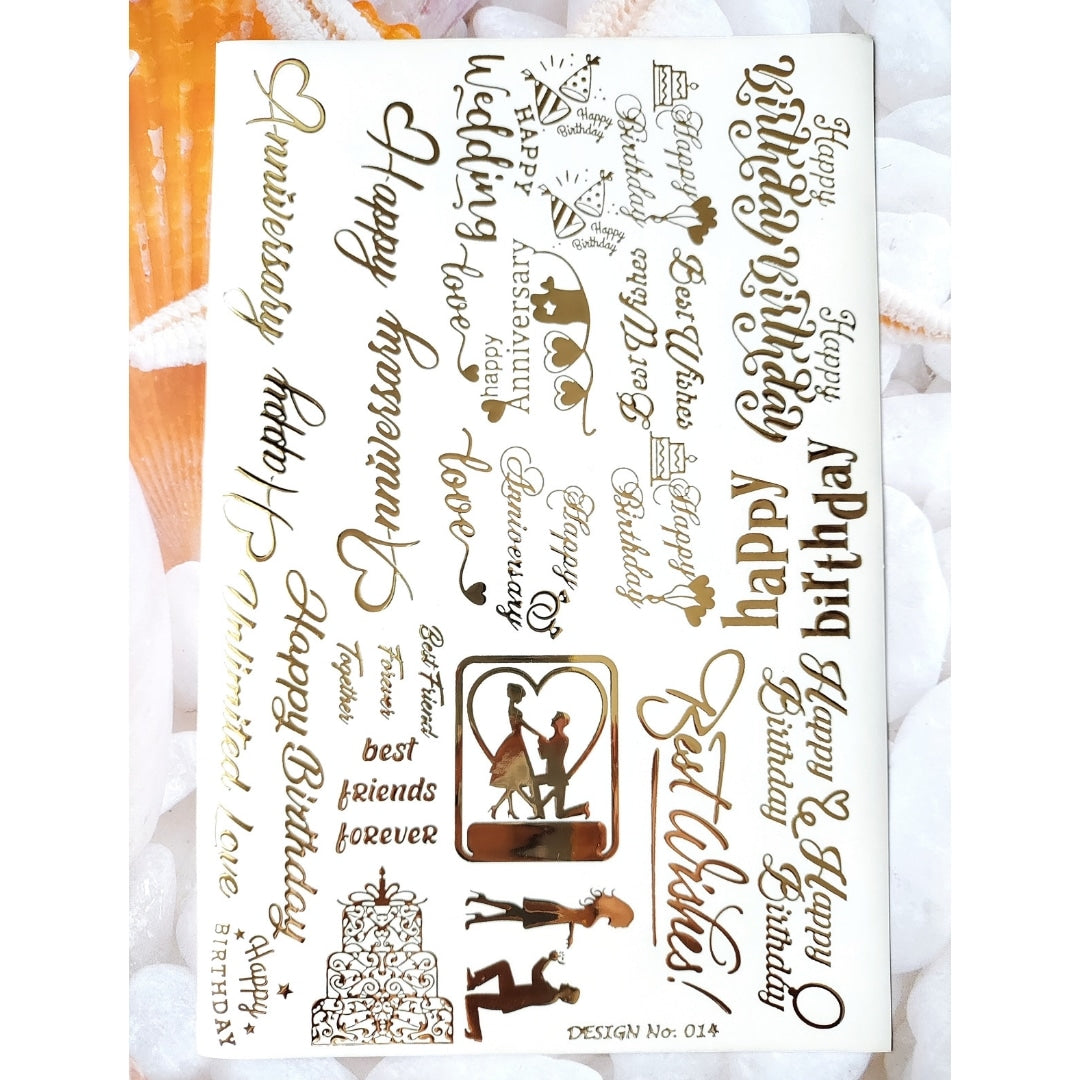 Happy
Birthday
Happy
Birthday
happy
birthday
Happy
Birthday
Happy
Birthday
Happy
Birthday
Best Wishes
Best Wishes
Happy
Birthday
Best Wishes!
Happy
Birthday
Happy
Birthday
HAPPY
Wedding
happy
Anniversary
love
love
Happy
Anniversary
Happy
Anniversary
Best Friend
Forever
Together
best
friends
forever
Anniversary
Happy
Happy Birthday
Unlimited Love
Happy
BIRTHDAY
DESIGN No. 014